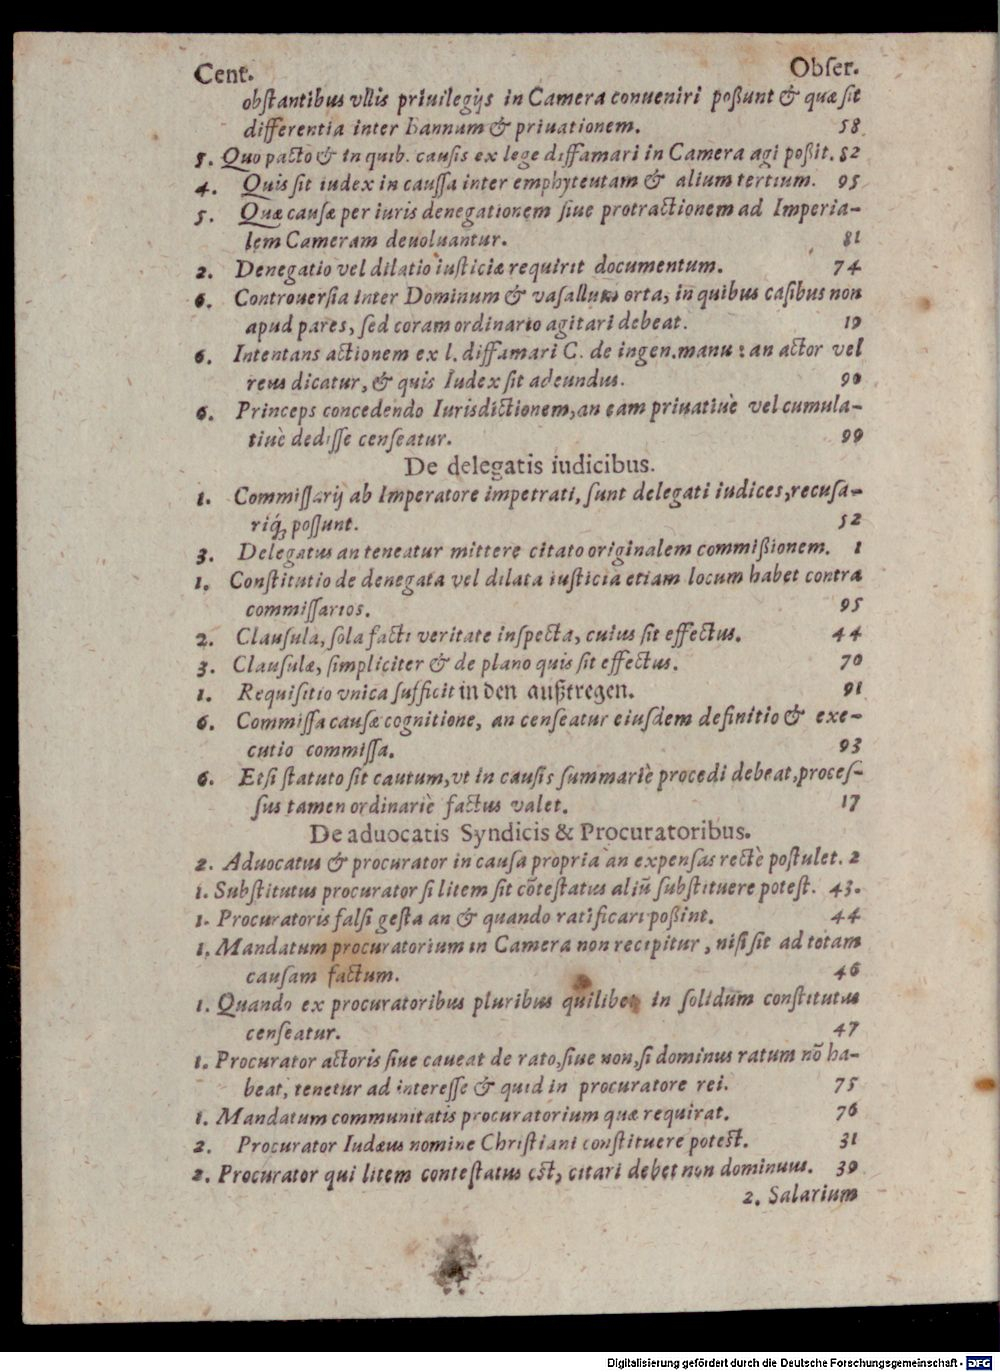 Cent. Obſer.
obſtantibus vllis priuilegijs in Camera conueniri poßunt & quæ ſit
differentia inter Bannum & priuationem. 58
5. Quo pacto & in quib. cauſis ex lege diffamari in Camera agi poßit. 52
4. Quis ſit iudex in cauſſa inter emphyteutam & alium tertium. 95
5. Quæ cauſæ per iuris denegationem ſiue protractionem ad Imperia-
lem Cameram deuoluantur. 81
2. Denegatio vel dilatio iuſticiæ requirit documentum. 74
6. Controuerſia inter Dominum & vaſallum orta, in quibus caſibus non
apud pares, ſed coram ordinario agitari debeat. 19
6. Intentans actionem ex l. diffamari C. de ingen.manu: an actor vel
reus dicatur, & quis Iudex ſit adeundus. 90
6. Princeps concedendo Iurisdictionem, an eam priuatiuè vel cumula-
tiuè dediſſe cenſeatur. 99
De delegatis iudicibus.
1. Commiſſarij ab Imperatore impetrati, ſunt delegati iudices, recuſa-
riq́; poſſunt. 52
3. Delegatus an teneatur mittere citato originalem commißionem. 1
1. Conſtitutio de denegata vel dilata iuſticia etiam locum habet contra
commiſſarios. 95
2. Clauſula, ſola facti veritate inſpecta, cuius ſit effectus. 44
3. Clauſulæ, ſimpliciter & de plano quis ſit effectus. 70
1. Requiſitio vnica ſufficit in den außtregen. 91
6. Commiſſa cauſæ cognitione, an cenſeatur eiuſdem definitio & exe-
cutio commiſſa. 93
6. Etſi ſtatuto ſit cautum, vt in cauſis ſummariè procedi debeat, proceſ-
ſus tamen ordinariè factus valet. 17
De aduocatis Syndicis & Procuratoribus.
2. Aduocatus & procurator in cauſa propria an expenſas rectè poſtulet. 2
1. Subſtitutus procurator ſi litem ſit cōteſtatus aliū ſubſtituere poteſt. 43.
1. Procuratoris falſi geſta an & quando ratificari poßint. 44
1. Mandatum procuratorium in Camera non recipitur, niſi ſit ad totam
cauſam factum. 46
1. Quando ex procuratoribus pluribus quilibet in ſolidum conſtitutus
cenſeatur. 47
1. Procurator actoris ſiue caueat de rato, ſiue non, ſi dominus ratum nō ha-
beat, tenetur ad intereſſe & quid in procuratore rei. 75
1. Mandatum communitatis procuratorium quæ requirat. 76
2. Procurator Iudæus nomine Chriſtiani conſtituere poteſt. 31
2. Procurator qui litem conteſtatus eſt, citari debet non dominus. 39
2. Salarium
Digitalisierung gefördert durch die Deutsche Forschungsgemeinschaft - DFG